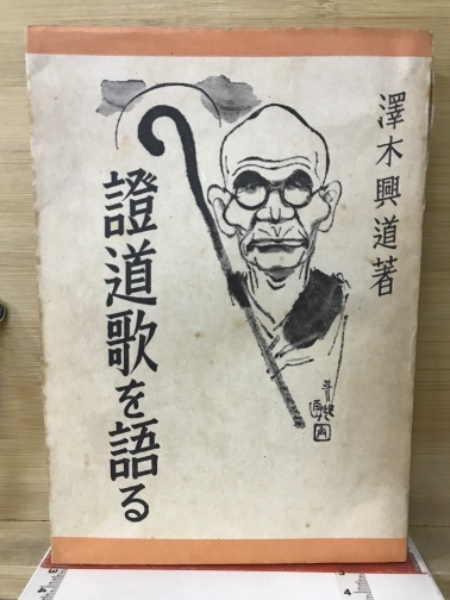 澤木興道著
證道歌を語る